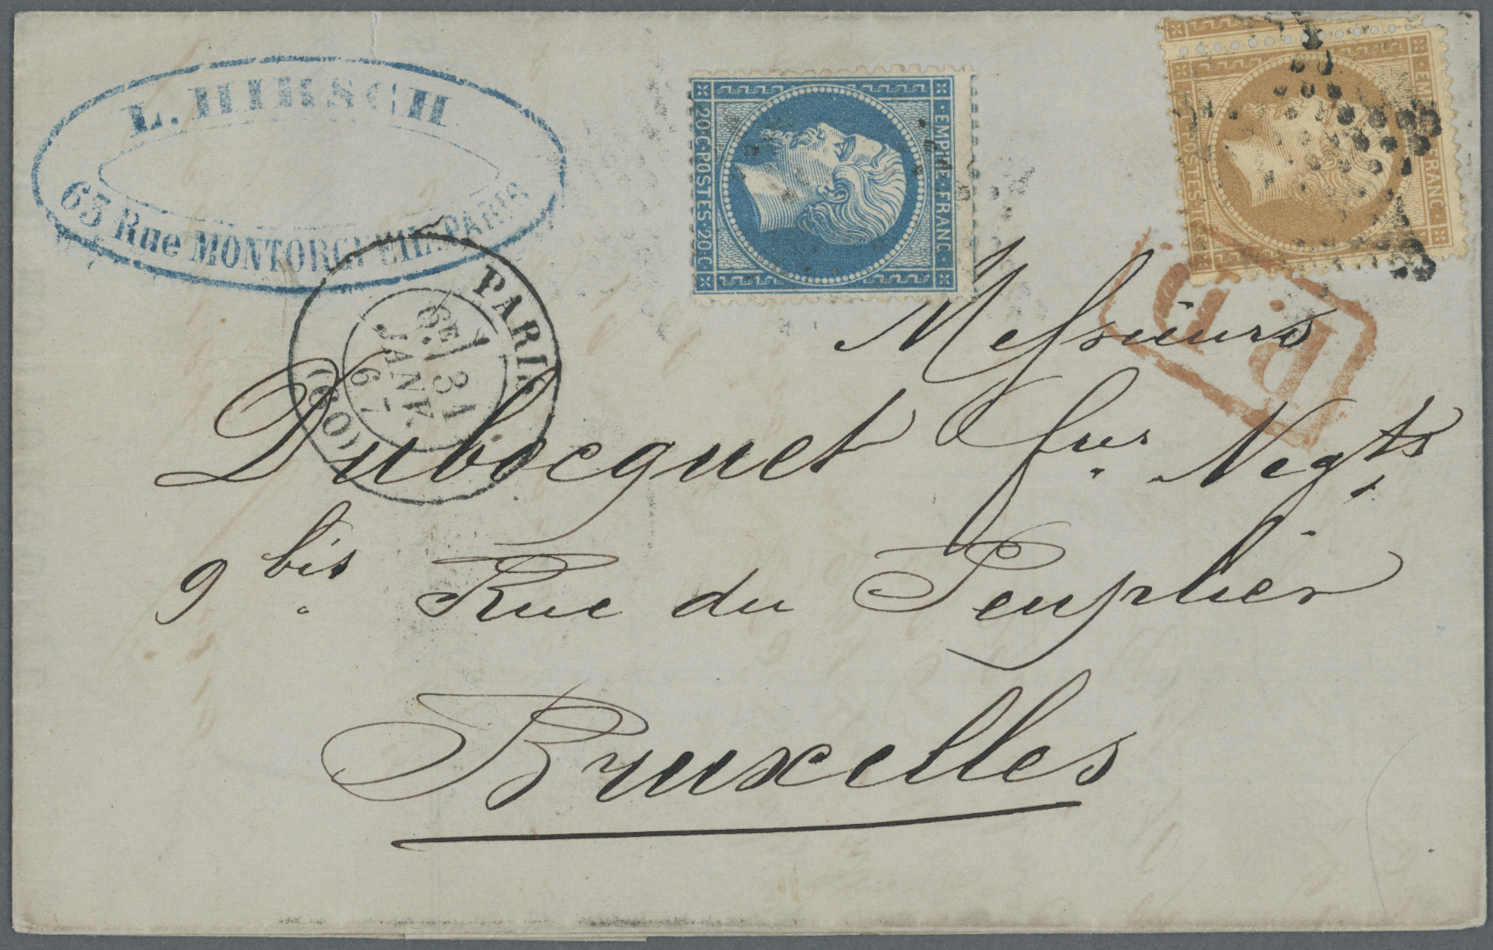 L. HIRSCH
63 Rue MONTORGUEIL PARIS
PARIS
(60)
6E
31
JANV.
67
EMPIRE · FRANC ·
20 · C · POSTES · 20 · C
EMPIRE FRANC
POSTES
P.D.
Messieurs
Dubocquet frès Negts
9 bis Rue du Peuplier
Bruxelles